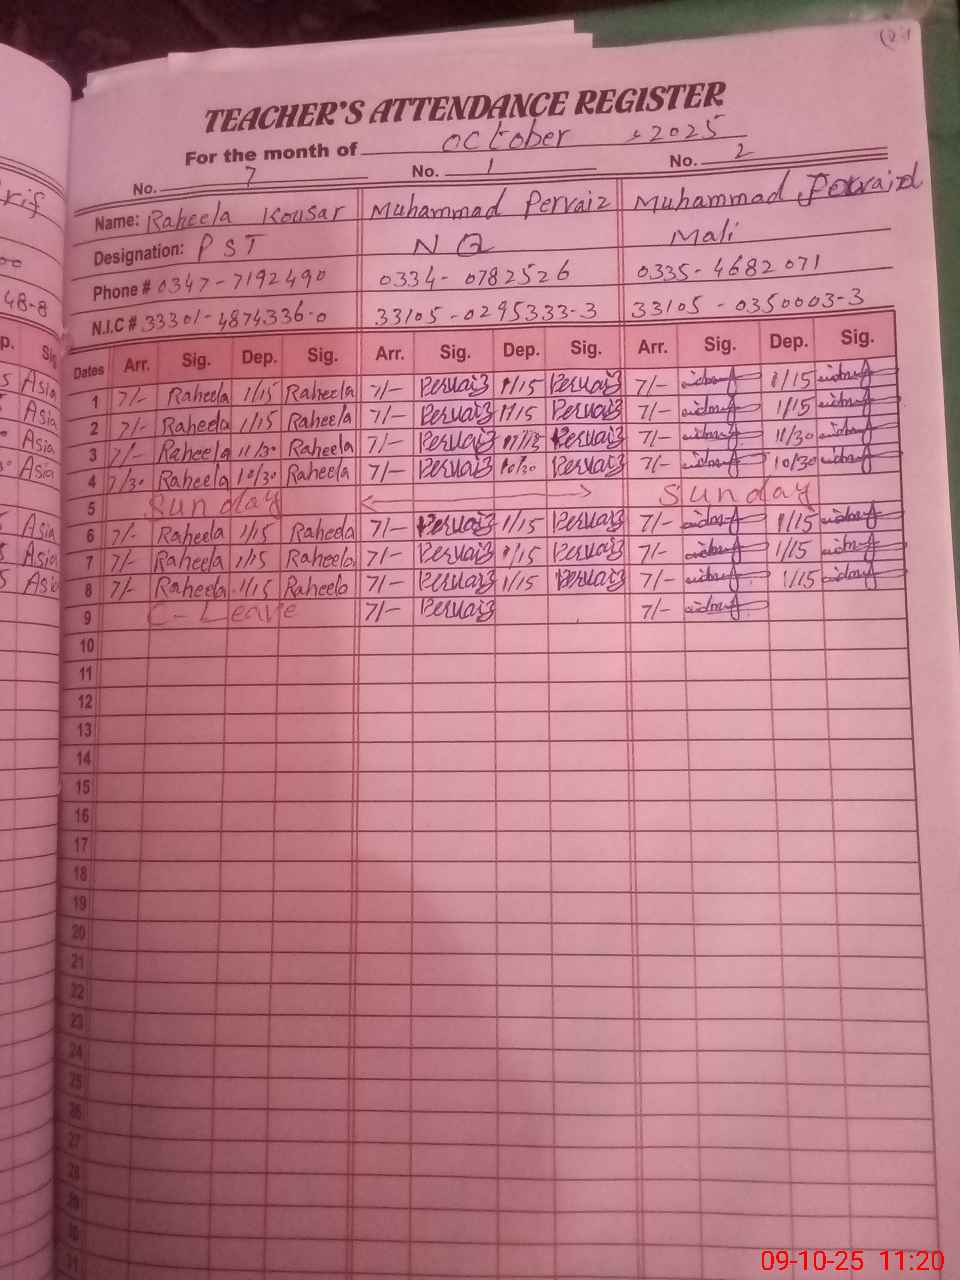 TEACHER'S ATTENDANCE REGISTER
For the month of October , 2025
No. 7 No. 1 No. 2
Name: Raheela Kousar Muhammad Pervaiz Muhammad Pervaiz
Designation: PST N Q Mali
Phone # 0347-7192490 0334-0782526 0335-4682071
N.I.C # 33301-4874336-0 33105-0295333-3 33105-0350003-3
Dates Arr. Sig. Dep. Sig. Arr. Sig. Dep. Sig. Arr. Sig. Dep. Sig.
1 7/- Raheela 1/15 Raheela 7/- Pervaiz 1/15 Pervaiz 7/- 1/15
2 7/- Raheela 1/15 Raheela 7/- Pervaiz 1/15 Pervaiz 7/- 1/15
3 7/- Raheela 11/30 Raheela 7/- Pervaiz Pervaiz 7/- 11/30
4 7/30 Raheela 10/30 Raheela 7/- Pervaiz 10/30 Pervaiz 7/- 10/30
5 Sunday Sunday
6 7/- Raheela 1/15 Raheela 7/- Pervaiz 1/15 Pervaiz 7/- 1/15
7 7/- Raheela 1/15 Raheela 7/- Pervaiz 1/15 Pervaiz 7/- 1/15
8 7/- Raheela 1/15 Raheela 7/- Pervaiz 1/15 Pervaiz 7/- 1/15
9 C-Leave 7/- Pervaiz 7/-
10
11
12
13
14
15
16
17
18
19
20
21
22
23
24
25
26
27
28
29
30
31
rif
48-8
p. Sig
Asia
Asia
Asia
Asia
Asia
Asia
Asia
09-10-25 11:20